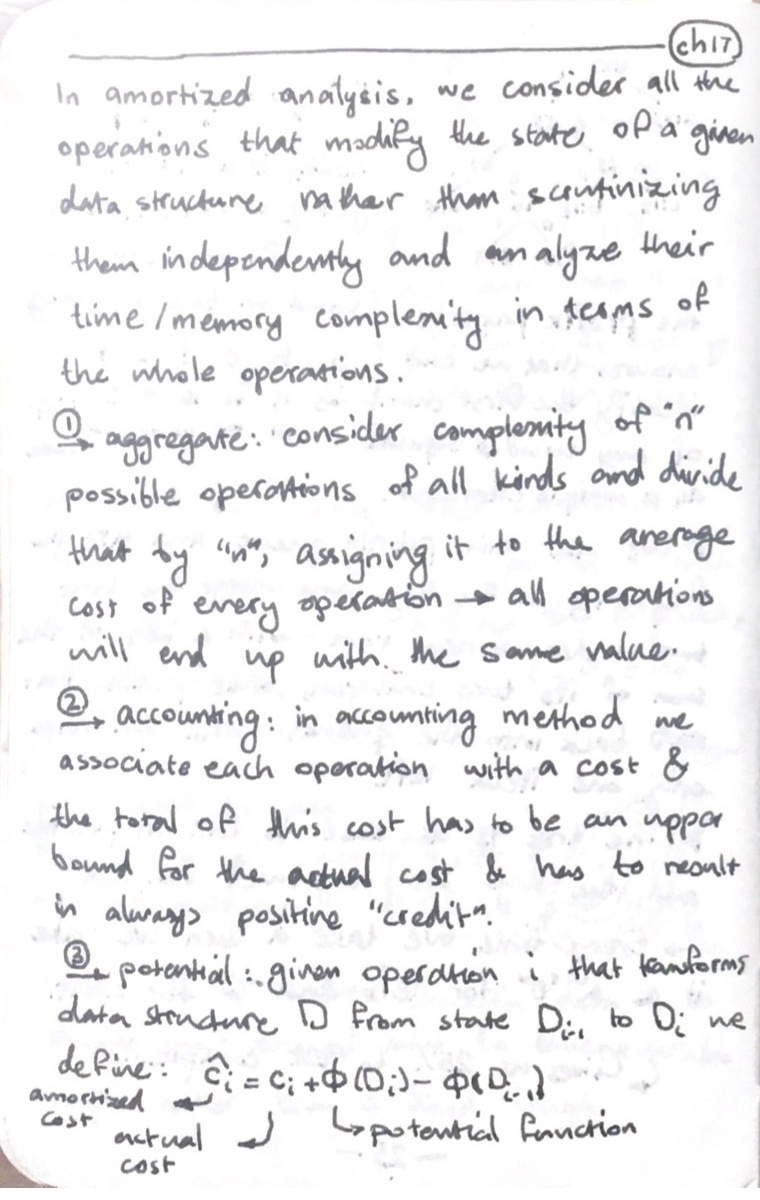 ch17
In amortized analysis, we consider all the
operations that modify the state of a given
data structure rather than scrutinizing
them independently and analyze their
time/memory complexity in terms of
the whole operations.
① → aggregate: consider complexity of "n"
possible operations of all kinds and divide
that by "n", assigning it to the average
cost of every operation → all operations
will end up with the same value.
② → accounting: in accounting method we
associate each operation with a cost &
the total of this cost has to be an upper
bound for the actual cost & has to result
in always positive "credit".
③ → potential: given operation i that transforms
data structure D from state Dᵢ₋₁ to Dᵢ we
define: ĉᵢ = cᵢ + Φ(Dᵢ) - Φ(Dᵢ₋₁)
amortized cost
actual cost
potential function